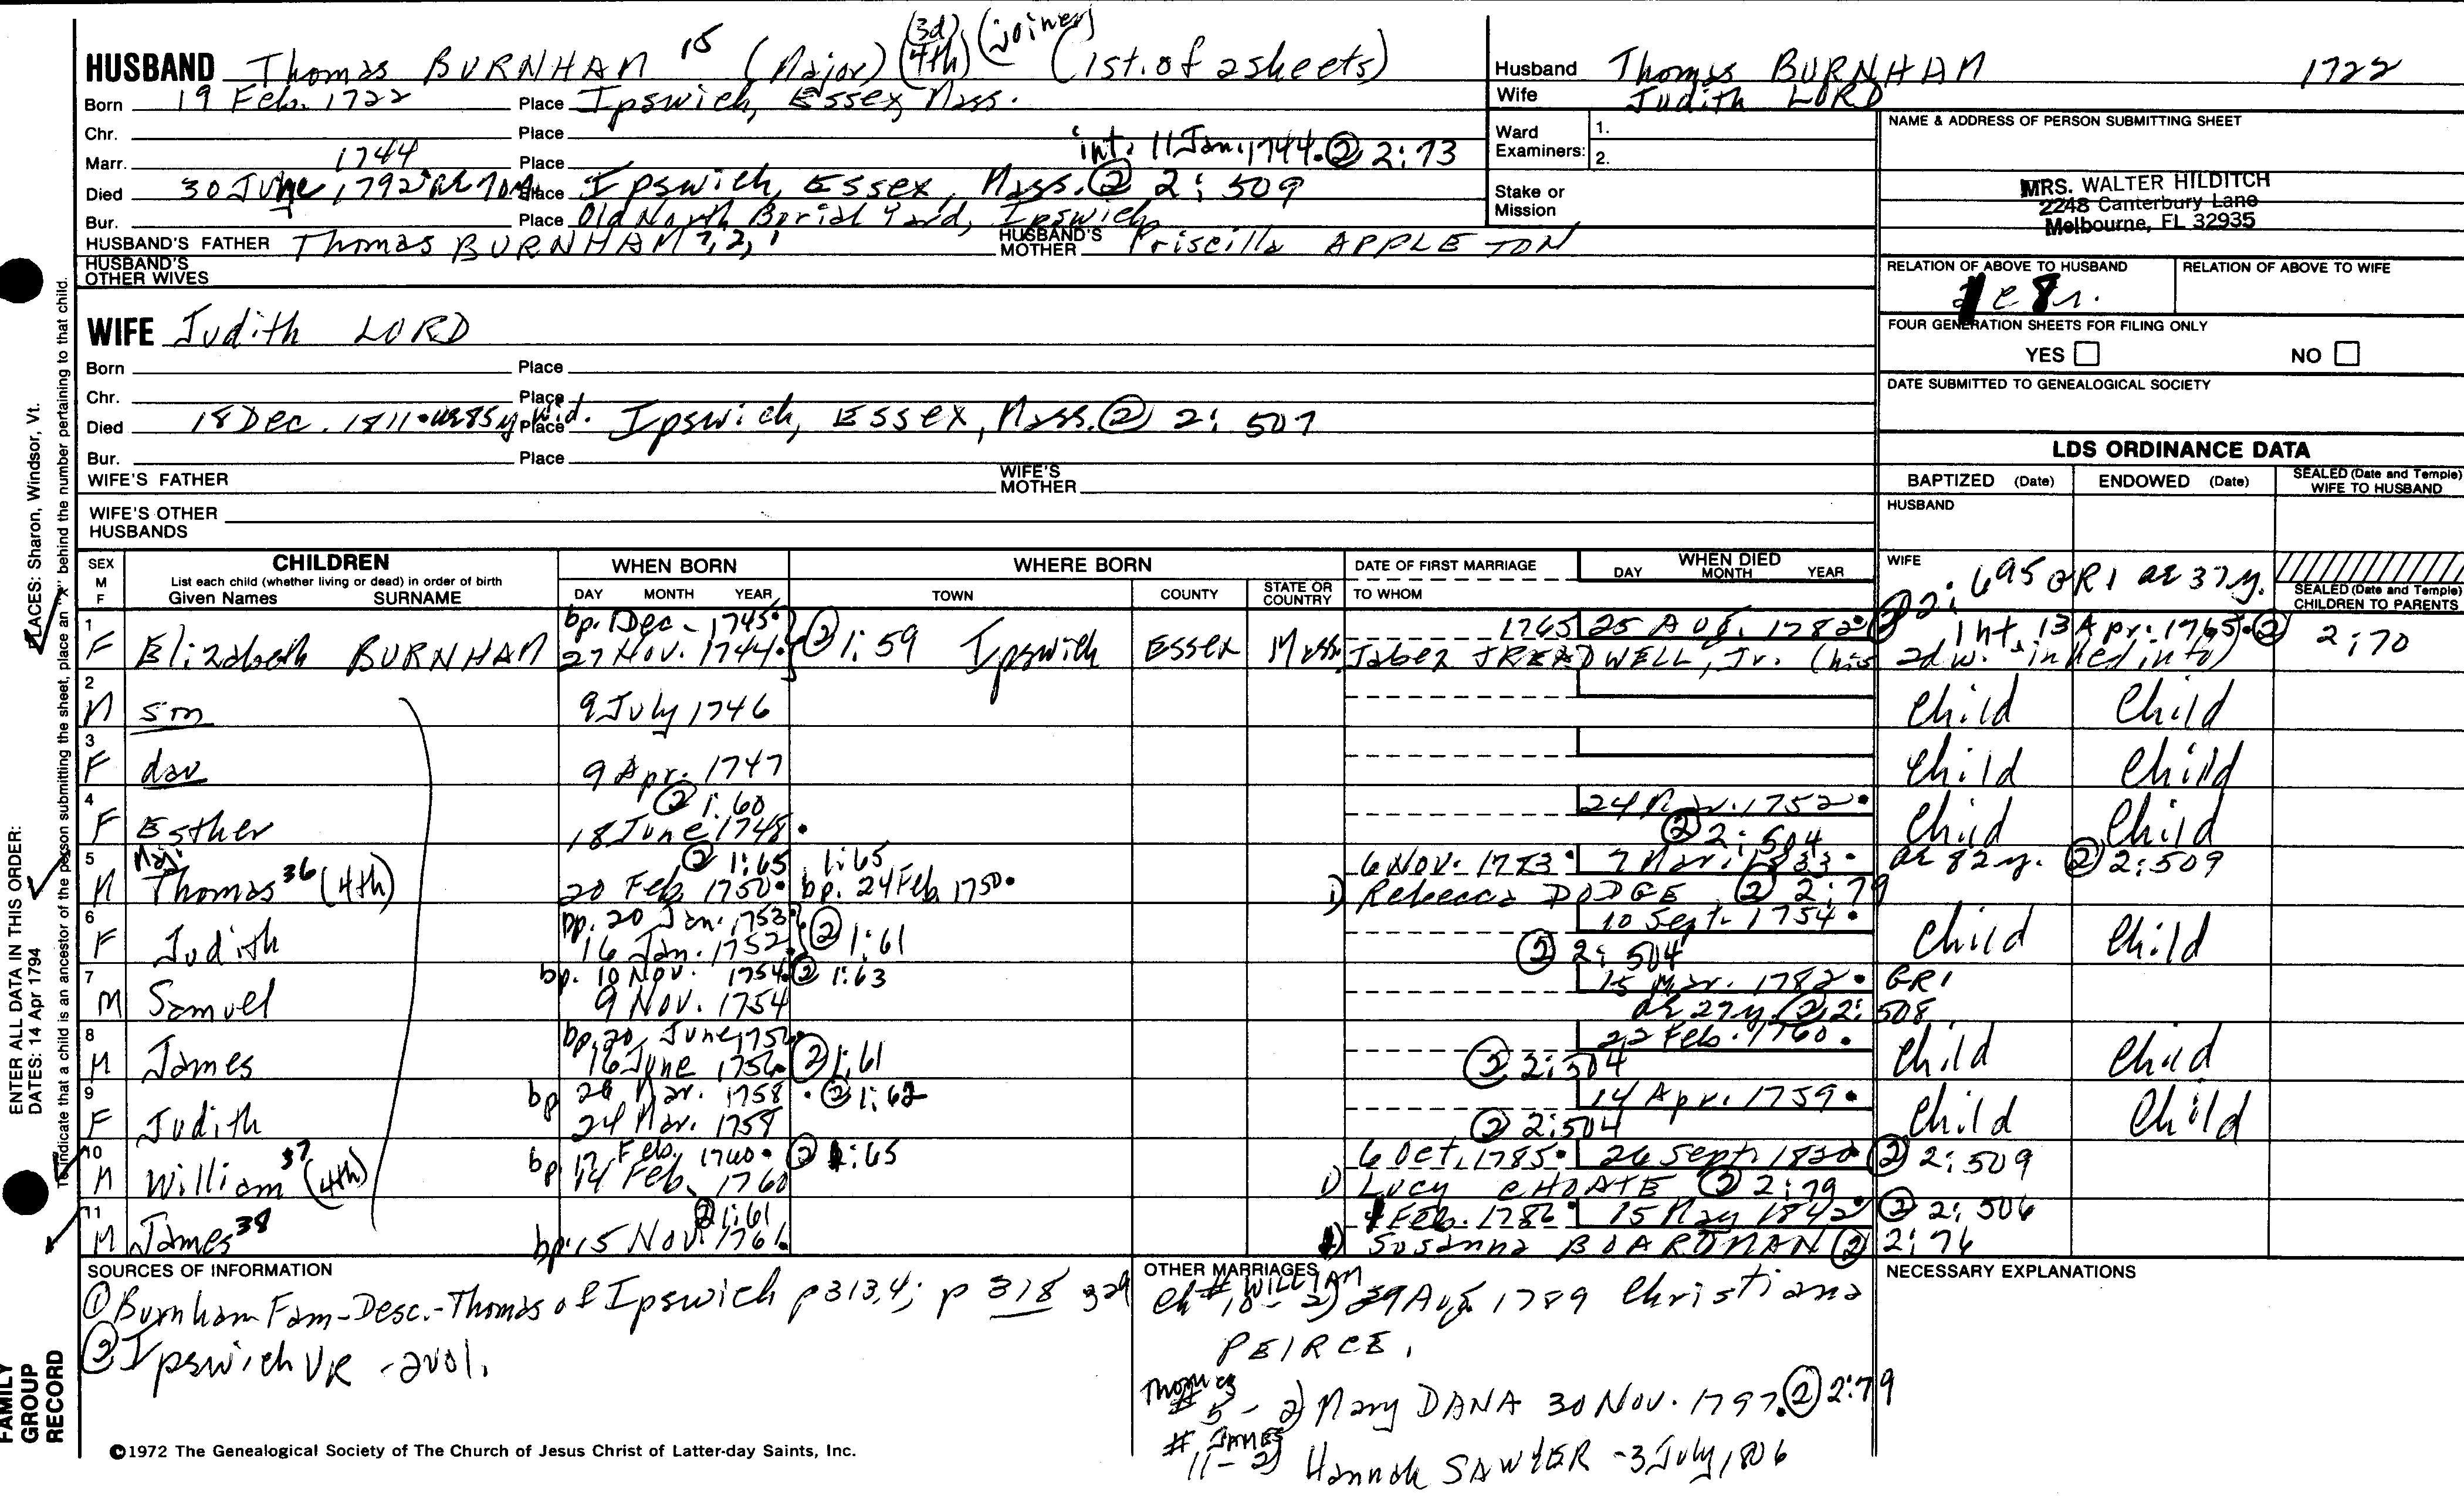 HUSBAND Thomas BURNHAM 15 (Major) (3d) (4th) (joiner) (1st. of 2 sheets)
Born 19 Feb. 1722 Place Ipswich, Essex, Mass.
Chr. Place
Marr. 1744 Place int. 11 Jan. 1744. ② 2:73
Died 30 June, 1792 ae 70y. Place Ipswich, Essex, Mass. ② 2:509
Bur. Place Old North Burial Yard, Ipswich
HUSBAND'S FATHER Thomas BURNHAM 7, 2, 1 HUSBAND'S MOTHER Priscilla APPLETON
HUSBAND'S OTHER WIVES
Husband Thomas BURNHAM 1722
Wife Judith LORD
Ward Examiners: 1.
2.
Stake or Mission
NAME & ADDRESS OF PERSON SUBMITTING SHEET
MRS. WALTER HILDITCH
2248 Canterbury Lane
Melbourne, FL 32935
RELATION OF ABOVE TO HUSBAND RELATION OF ABOVE TO WIFE
FOUR GENERATION SHEETS FOR FILING ONLY
YES NO
DATE SUBMITTED TO GENEALOGICAL SOCIETY
WIFE Judith LORD
Born Place
Chr. Place
Died 18 Dec. 1811. ae 85y wid. Place Ipswich, Essex, Mass. ② 2:507
Bur. Place
WIFE'S FATHER WIFE'S MOTHER
WIFE'S OTHER HUSBANDS
LDS ORDINANCE DATA
BAPTIZED (Date) ENDOWED (Date) SEALED (Date and Temple) WIFE TO HUSBAND
HUSBAND
WIFE
SEALED (Date and Temple) CHILDREN TO PARENTS
SEX M F CHILDREN WHEN BORN WHERE BORN DATE OF FIRST MARRIAGE WHEN DIED
List each child (whether living or dead) in order of birth
Given Names SURNAME DAY MONTH YEAR TOWN COUNTY STATE OR COUNTRY TO WHOM DAY MONTH YEAR
② 2:695 GR1 ae 37y.
1 bp. 1 Dec. 1745. 1765 25 Aug. 1782 int. 13 Apr. 1765. ② 2:70
F Elizabeth BURNHAM 27 Nov. 1744. ② 1:59 Ipswich Essex Mass. Jabez TREADWELL, Jr. (his 2d w. in)
2 M son 9 July 1746 Child Child
3 F dau 9 Apr. 1747 Child Child
4 ② 1:60 24 1752.
F Esther 18 June 1748. ② 2:504 Child Child
5 Maj. ② 1:65 1:65 6 Nov. 1773. 7 Mar. 1833. ae 82y. ② 2:509
M Thomas 36 (4th) 20 Feb. 1750. bp. 24 Feb. 1750. 1) Rebecca DODGE ② 2:79
6 bp. 20 Jan. 1753 10 Sept. 1754.
F Judith 16 Jan. 1752. ② 1:61 ② 2:504 Child Child
7 bp. 10 Nov. 1754. ② 1:63 15 Mar. 1782. GR1
M Samuel 9 Nov. 1754 ae 27y. ② 2:508
8 bp. 20 June 1756 22 Feb. 1760.
M James 16 June 1756. ② 1:61 ② 2:504 Child Child
9 bp 26 Mar. 1758. ② 1:62 14 Apr. 1759.
F Judith 24 Mar. 1758 ② 2:504 Child Child
10 bp 17 Feb. 1760. ② 1:65 6 Oct. 1785. 26 Sept. 1820 ② 2:509
M William 37 (4th) 14 Feb. 1760 1) Lucy CHOATE ② 2:79
11 ② 1:61 Feb. 1786. 15 May 1842 ② 2:506
M James 38 bp. 15 Nov. 1761. 1) Susanna BOARDMAN ② 2:76
SOURCES OF INFORMATION
① Burnham Fam-Desc.-Thomas of Ipswich p 313,4; p 318 329
② Ipswich VR - 2 vol.
OTHER MARRIAGES
WILLIAM
Ch # 10 - 2) 29 Aug. 1789 Christiana
PEIRCE.
Thomas
# 5 - 2) Mary DANA 30 Nov. 1797. ② 2:79
# JAMES
11 - 2) Hannah SAWYER - 3 July 1806
NECESSARY EXPLANATIONS
©1972 The Genealogical Society of The Church of Jesus Christ of Latter-day Saints, Inc.
PLACES: Sharon, Windsor, Vt.
ENTER ALL DATA IN THIS ORDER:
DATES: 14 Apr 1794
To indicate that a child is an ancestor of the person submitting the sheet, place an "X" behind the number pertaining to that child.
FAMILY GROUP RECORD